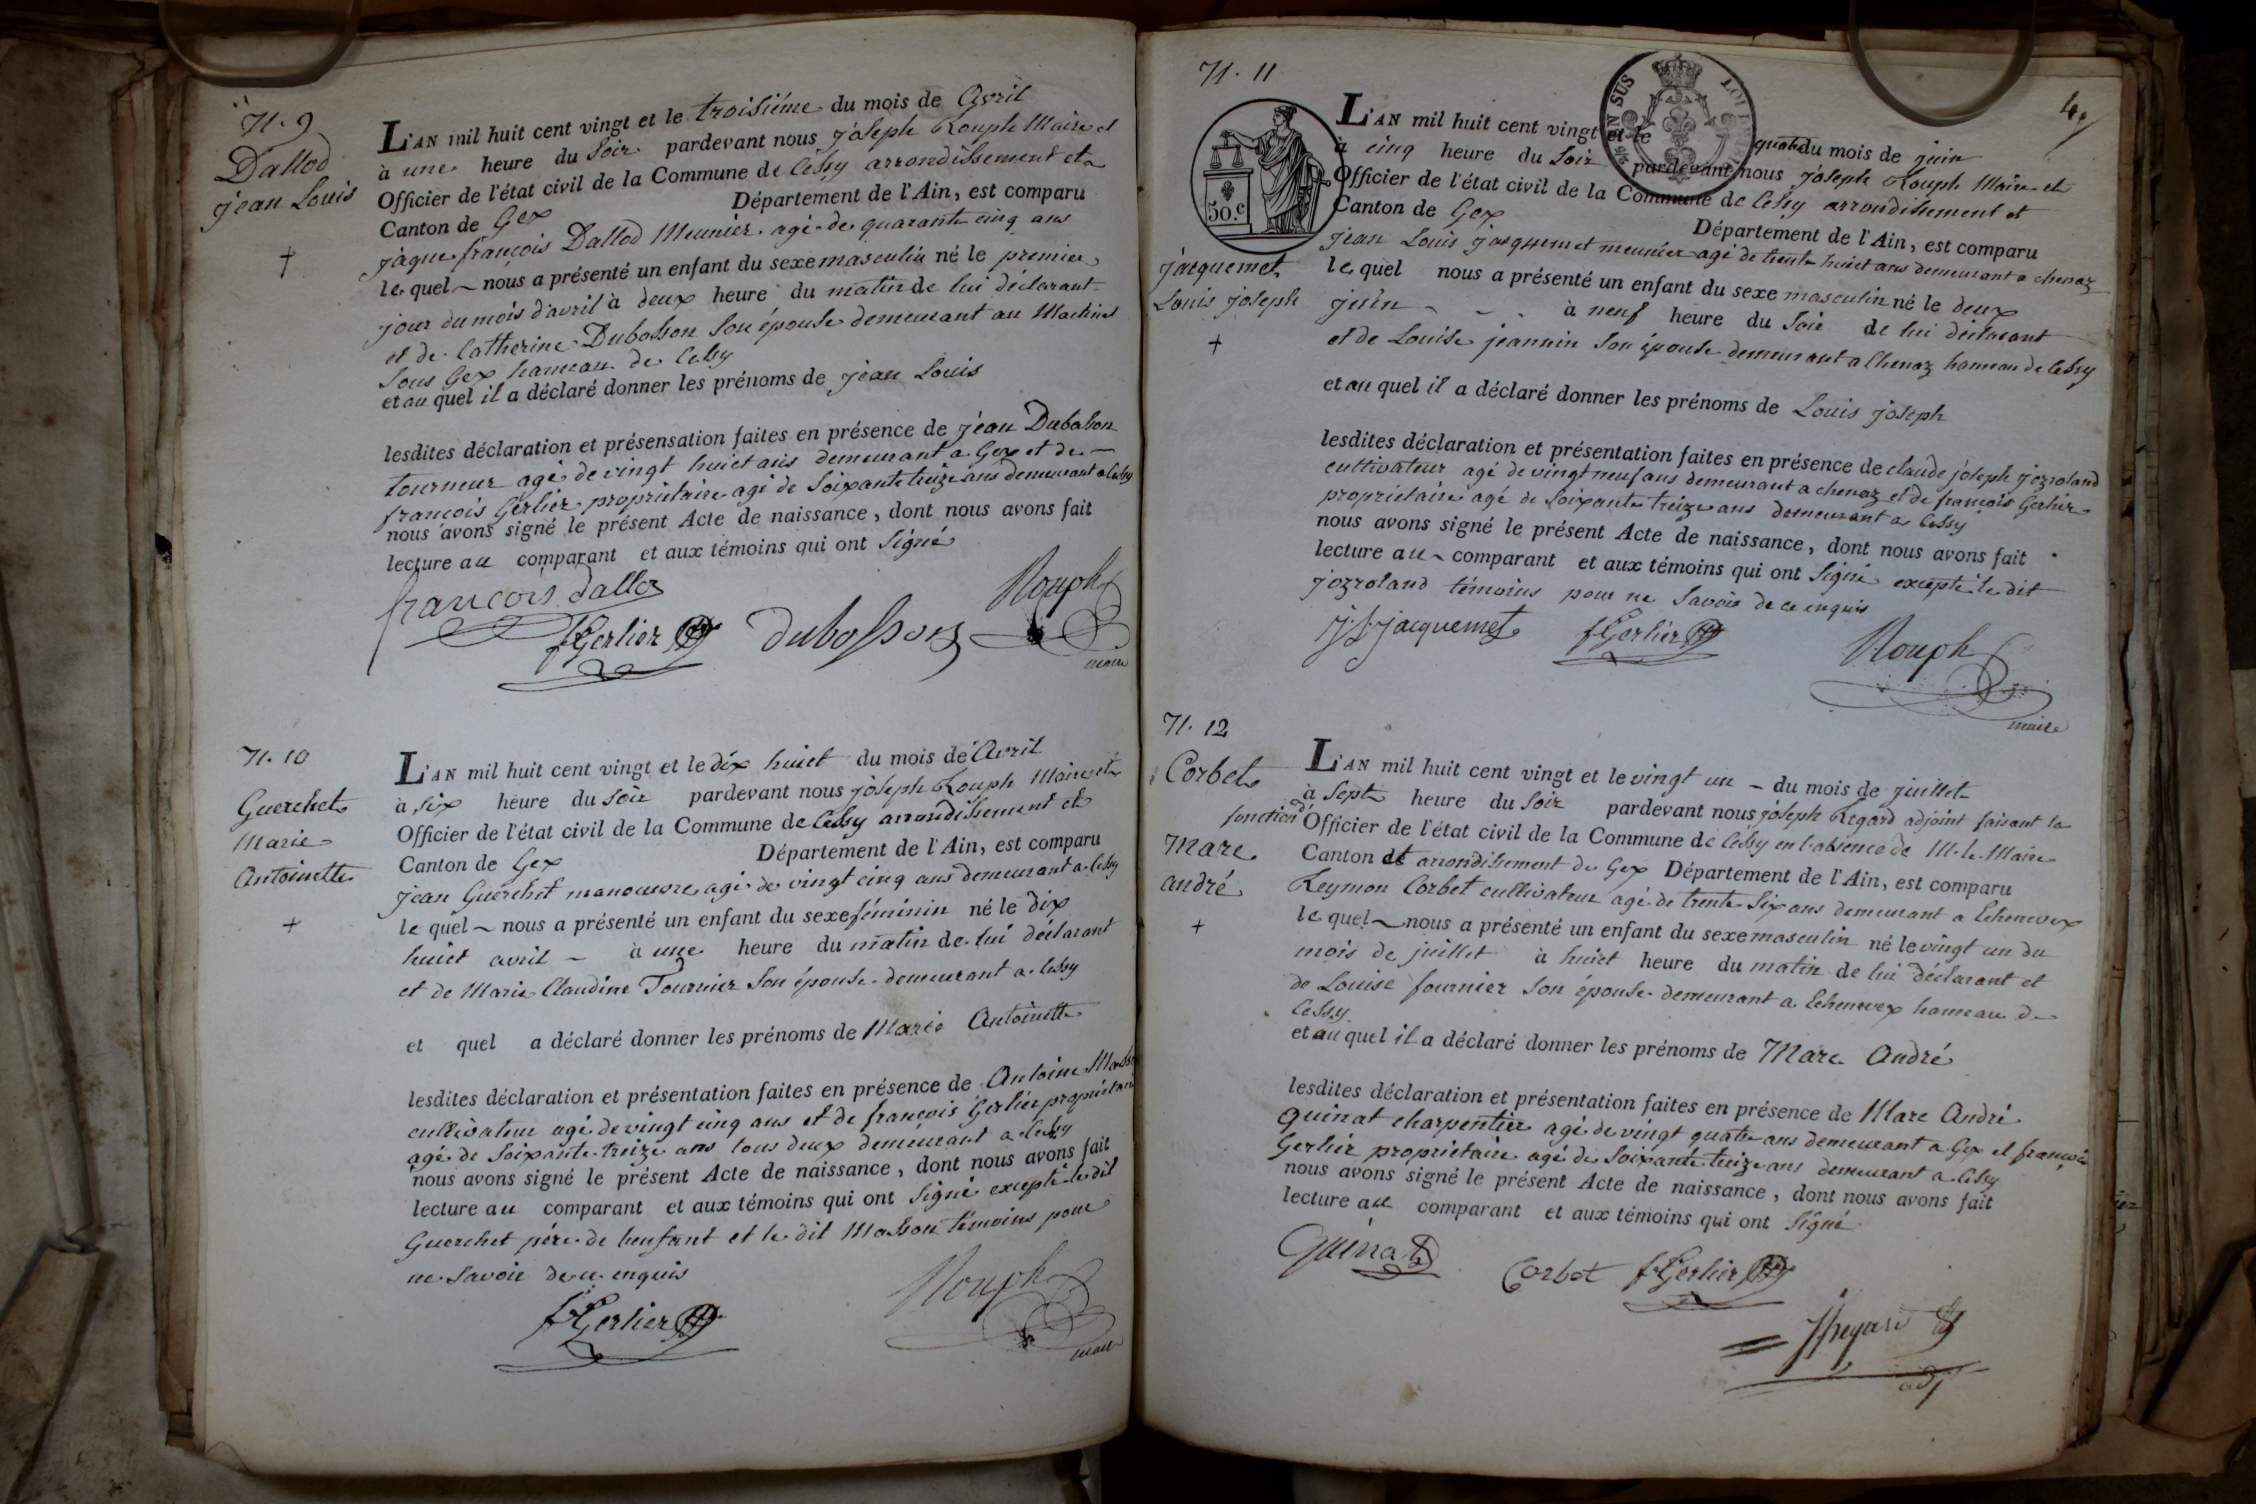 N. 9
Dallod
jean Louis
L'AN mil huit cent vingt et le troisiéme du mois de Avril
à une heure du Soir pardevant nous joseph Rouph Maire et
Officier de l'état civil de la Commune de Cessy arrondissement et
Canton de Gex Département de l'Ain, est comparu
jàque françois Dallod Meunier agé de quarante cinq ans
le quel nous a présenté un enfant du sexe masculin né le premier
jour du mois d'avril à deux heure du matin de lui déclarant
et de Catherine Dubosson son épouse demeurant au Martinet
sous Gex hameau de Cessy
et au quel il a déclaré donner les prénoms de jean Louis
lesdites déclaration et présensation faites en présence de jean Dubosson
tourneur agé de vingt huict ans demeurant a Gex et de
françois Gerlier propriétaire agé de soixante treize ans demeurant a Cessy
nous avons signé le présent Acte de naissance, dont nous avons fait
lecture au comparant et aux témoins qui ont signé
françois dalloz
Rouph
fGerlier
dubosson
maire
N. 10
Guerchet
Marie
Antoinette
L'AN mil huit cent vingt et le dix huict du mois de Avril
à six heure du soir pardevant nous joseph Rouph Maire et
Officier de l'état civil de la Commune de Cessy arrondissement et
Canton de Gex Département de l'Ain, est comparu
jean Guerchet manoeuvre agé de vingt cinq ans demeurant a Cessy
le quel nous a présenté un enfant du sexe féminin né le dix
huict avril à une heure du matin de lui déclarant
et de Marie Claudine Tournier son épouse demeurant a Cessy
et quel a déclaré donner les prénoms de Marie Antoinette
lesdites déclaration et présentation faites en présence de Antoine
cultivateur agé de vingt cinq ans et de françois Gerlier propriétaire
agé de soixante treize ans tous deux demeurant a Cessy
nous avons signé le présent Acte de naissance, dont nous avons fait
lecture au comparant et aux témoins qui ont signé excepté le dit
Guerchet pére de lenfant et le dit Masson témoins pour
ne savoir de ce enquis
fGerlier
Rouph
maire
N. 11
4
50.c
EN SUS
jacquemet
Louis joseph
L'AN mil huit cent vingt et le quatre du mois de juin
à cinq heure du Soir pardevant nous joseph Rouph Maire et
Officier de l'état civil de la Commune de Cessy arrondissement et
Canton de Gex Département de l'Ain, est comparu
jean Louis jacquemet meunier agé de trente huict ans demeurant a chenaz
le quel nous a présenté un enfant du sexe masculin né le deux
juin à neuf heure du Soir de lui déclarant
et de Louise jeannin son épouse demeurant a Chenaz hameau de Cessy
et au quel il a déclaré donner les prénoms de Louis joseph
lesdites déclaration et présentation faites en présence de claude joseph jozroland
cultivateur agé de vingt neuf ans demeurant a chenaz et de françois Gerlier
propriétaire agé de soixante treize ans demeurant a Cessy
nous avons signé le présent Acte de naissance, dont nous avons fait
lecture au comparant et aux témoins qui ont signé excepté le dit
jozroland témoins pour ne savoir de ce enquis
jljacquemet
fGerlier
Rouph
maire
N. 12
Corbet
Marc
andré
L'AN mil huit cent vingt et le vingt un du mois de juillet
à Sept heure du Soir pardevant nous joseph Régard adjoint faisant la
fonction d'Officier de l'état civil de la Commune de Cessy en l'absence de M. le Maire
Canton et arrondissement de Gex Département de l'Ain, est comparu
Reymon Corbet cultivateur agé de trente six ans demeurant a Echenevex
le quel nous a présenté un enfant du sexe masculin né le vingt un du
mois de juillet à huict heure du matin de lui déclarant et
de Louise fournier son épouse demeurant a Echenevex hameau de
Cessy
et au quel il a déclaré donner les prénoms de Marc André
lesdites déclaration et présentation faites en présence de Marc André
quinat charpentier agé de vingt quatre ans demeurant a Gex et françois
Gerlier propriétaire agé de soixante treize ans demeurant a Cessy
nous avons signé le présent Acte de naissance, dont nous avons fait
lecture au comparant et aux témoins qui ont signé
Quinat
Corbet
fGerlier
JRegard
adj